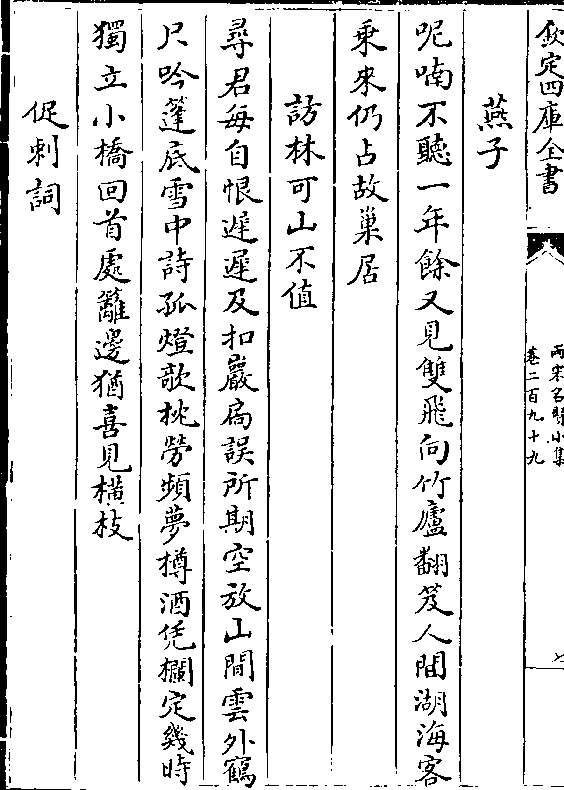 欽定四庫全書
兩宋名賢小集
卷二百九十九
七
燕子
呢喃不聽一年餘又見雙飛向竹廬翻笈人間湖海客
乗來仍占故巢居
訪林可山不值
尋君毎自恨遲遲及扣巖扄誤所期空放山間雲外鶴
只吟篷底雪中詩孤燈欹枕勞頻夢樽酒凭欄定幾時
獨立小橋回首處籬邊猶喜見横枝
促刺詞